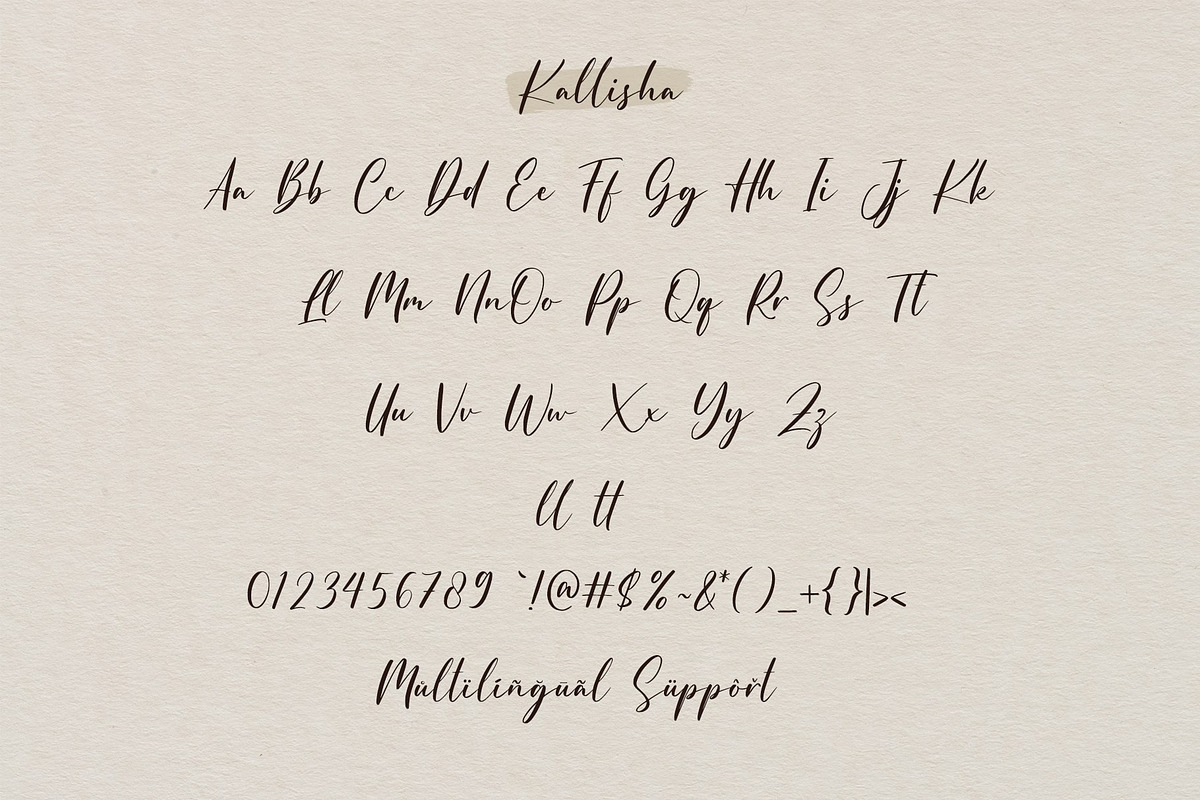 Kallisha
Aa Bb Cc Dd Ee Ff Gg Hh Ii Jj Kk
Ll Mm Nn Oo Pp Qq Rr Ss Tt
Uu Vv Ww Xx Yy Zz
ll tt
0123456789 `!@#$%~&*()_+{}|><
Můltïlíñğūãl Süppôřt